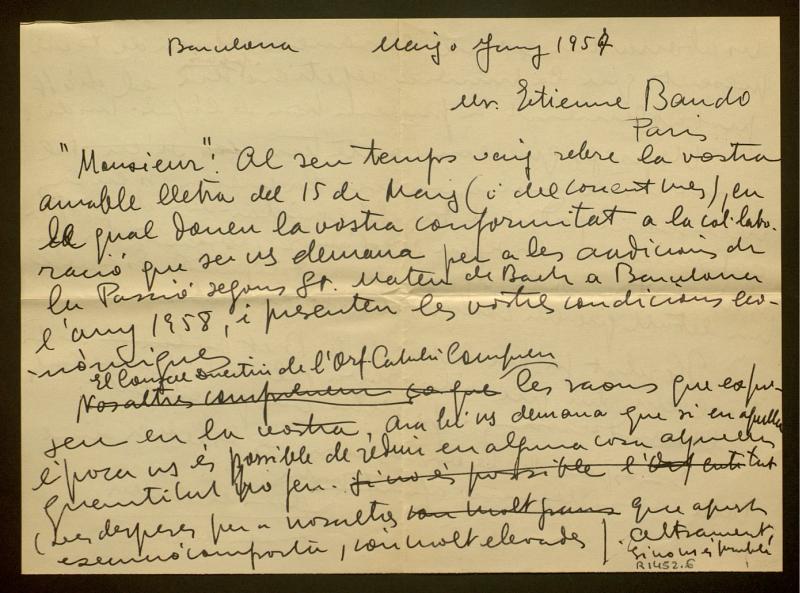 Barcelona Maig o Juny 1957
Mr. Etienne Baudo
Paris
"Monsieur": Al seu temps vaig rebre la vostra
amable lletra del 15 de Maig (o del corrent mes), en
la qual doneu la vostra conformitat a la col·labo-
ració que se us demana per a les audicions de
la Passió segons St. Mateu de Bach a Barcelona
l'any 1958, i presenteu les vostres condicions eco-
nòmiques
El Consell Directiu de l'Orf. Català Compren
Nosaltres comprenem ço que les raons que expo-
seu en la vostra, Ara bé us demana que si en aquella
època us és possible de reduir en alguna cosa aquella
quantitat ho feu. Si no és possible l'Orf entitat
(Les despeses per a nosaltres són molt grans que aquesta
comportà, són molt elevades). Altrament,
si no us és possible
R1452.6